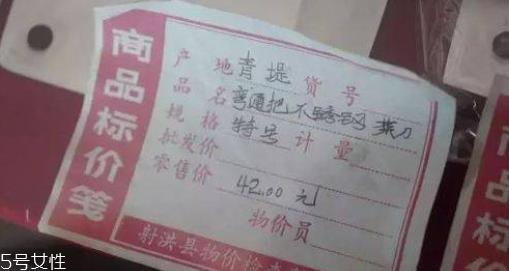 商品标价笺
产地 青堤 货号
品名 弯通把不锈钢菜刀
规格 特号 计量
批发价
零售价 42.00元
物价员
射洪县物价检查
5号女性